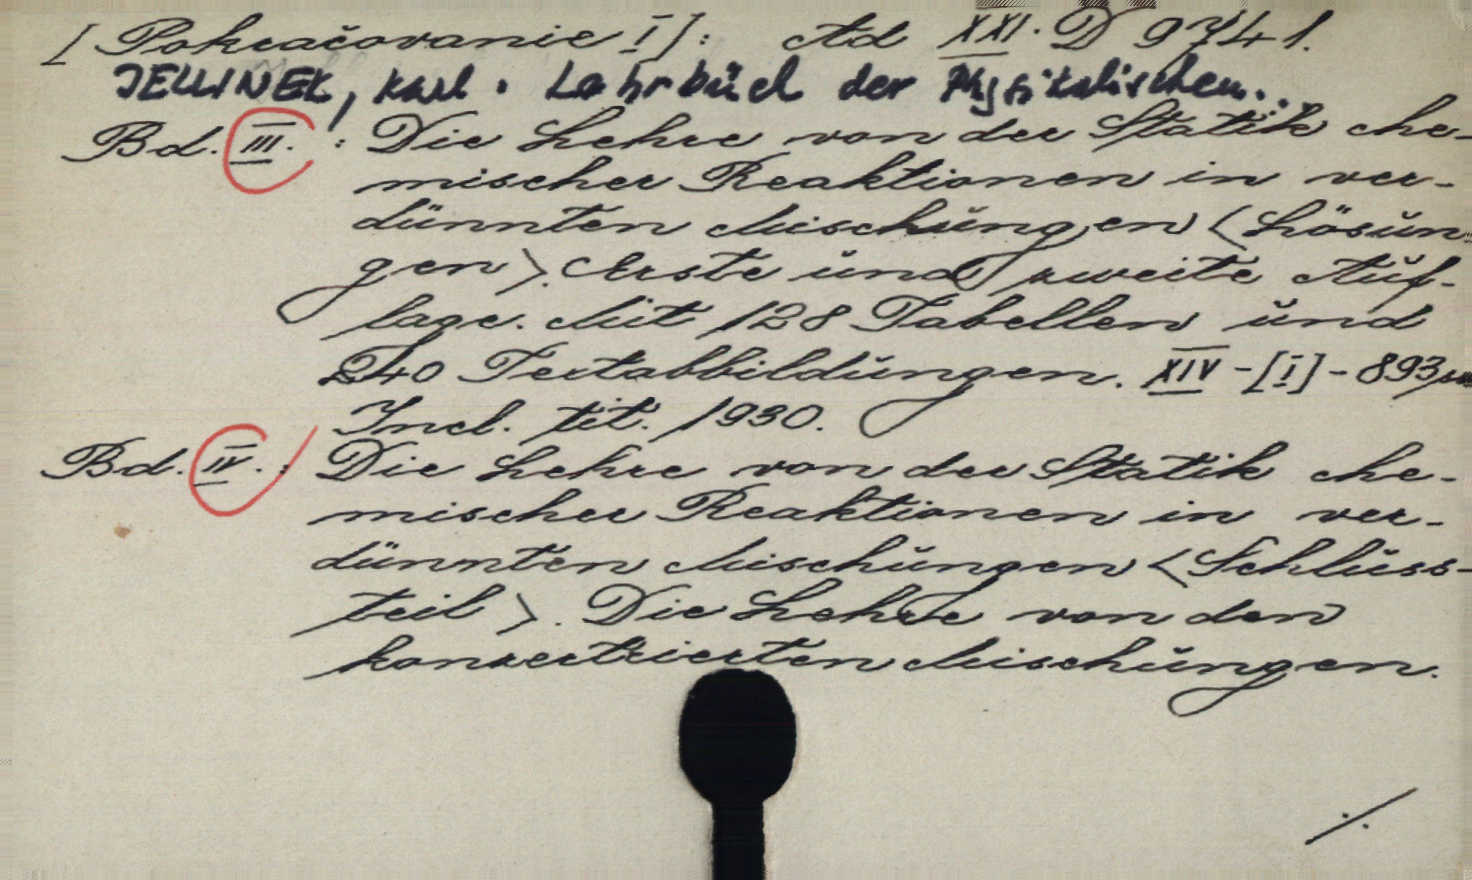 [Pokračovanie I]: Ad XXI. D 9741.
JELLINEK, Karl. Lehrbuch der Physikalischen...
Bd. III. : Die Lehre von der Statik che-
mischer Reaktionen in ver-
dünnten Mischungen <Lösun-
gen>. Erste und zweite Auf-
lage. Mit 128 Tabellen und
240 Textabbildungen. XIV-[I]-893
Incl. tit. 1930.
Bd. IV. : Die Lehre von der Statik che-
mischer Reaktionen in ver-
dünnten Mischungen <Schluss-
teil>. Die Lehre von den
konzertrierten Mischungen.
./.